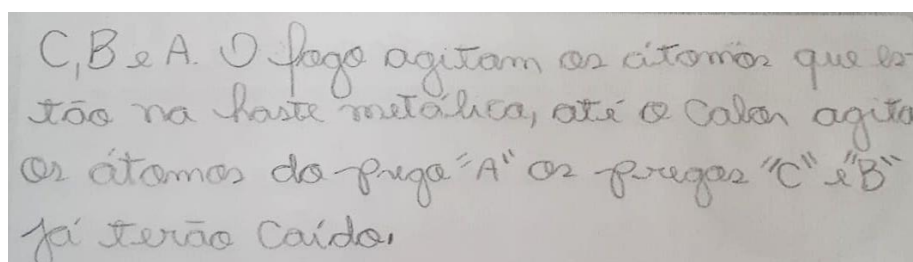 C, B e A. O fogo agitam os átomos que es-
tão na haste metálica, até o calor agita
os átomos do prego "A" os pregos "C" e "B"
já terão caído.